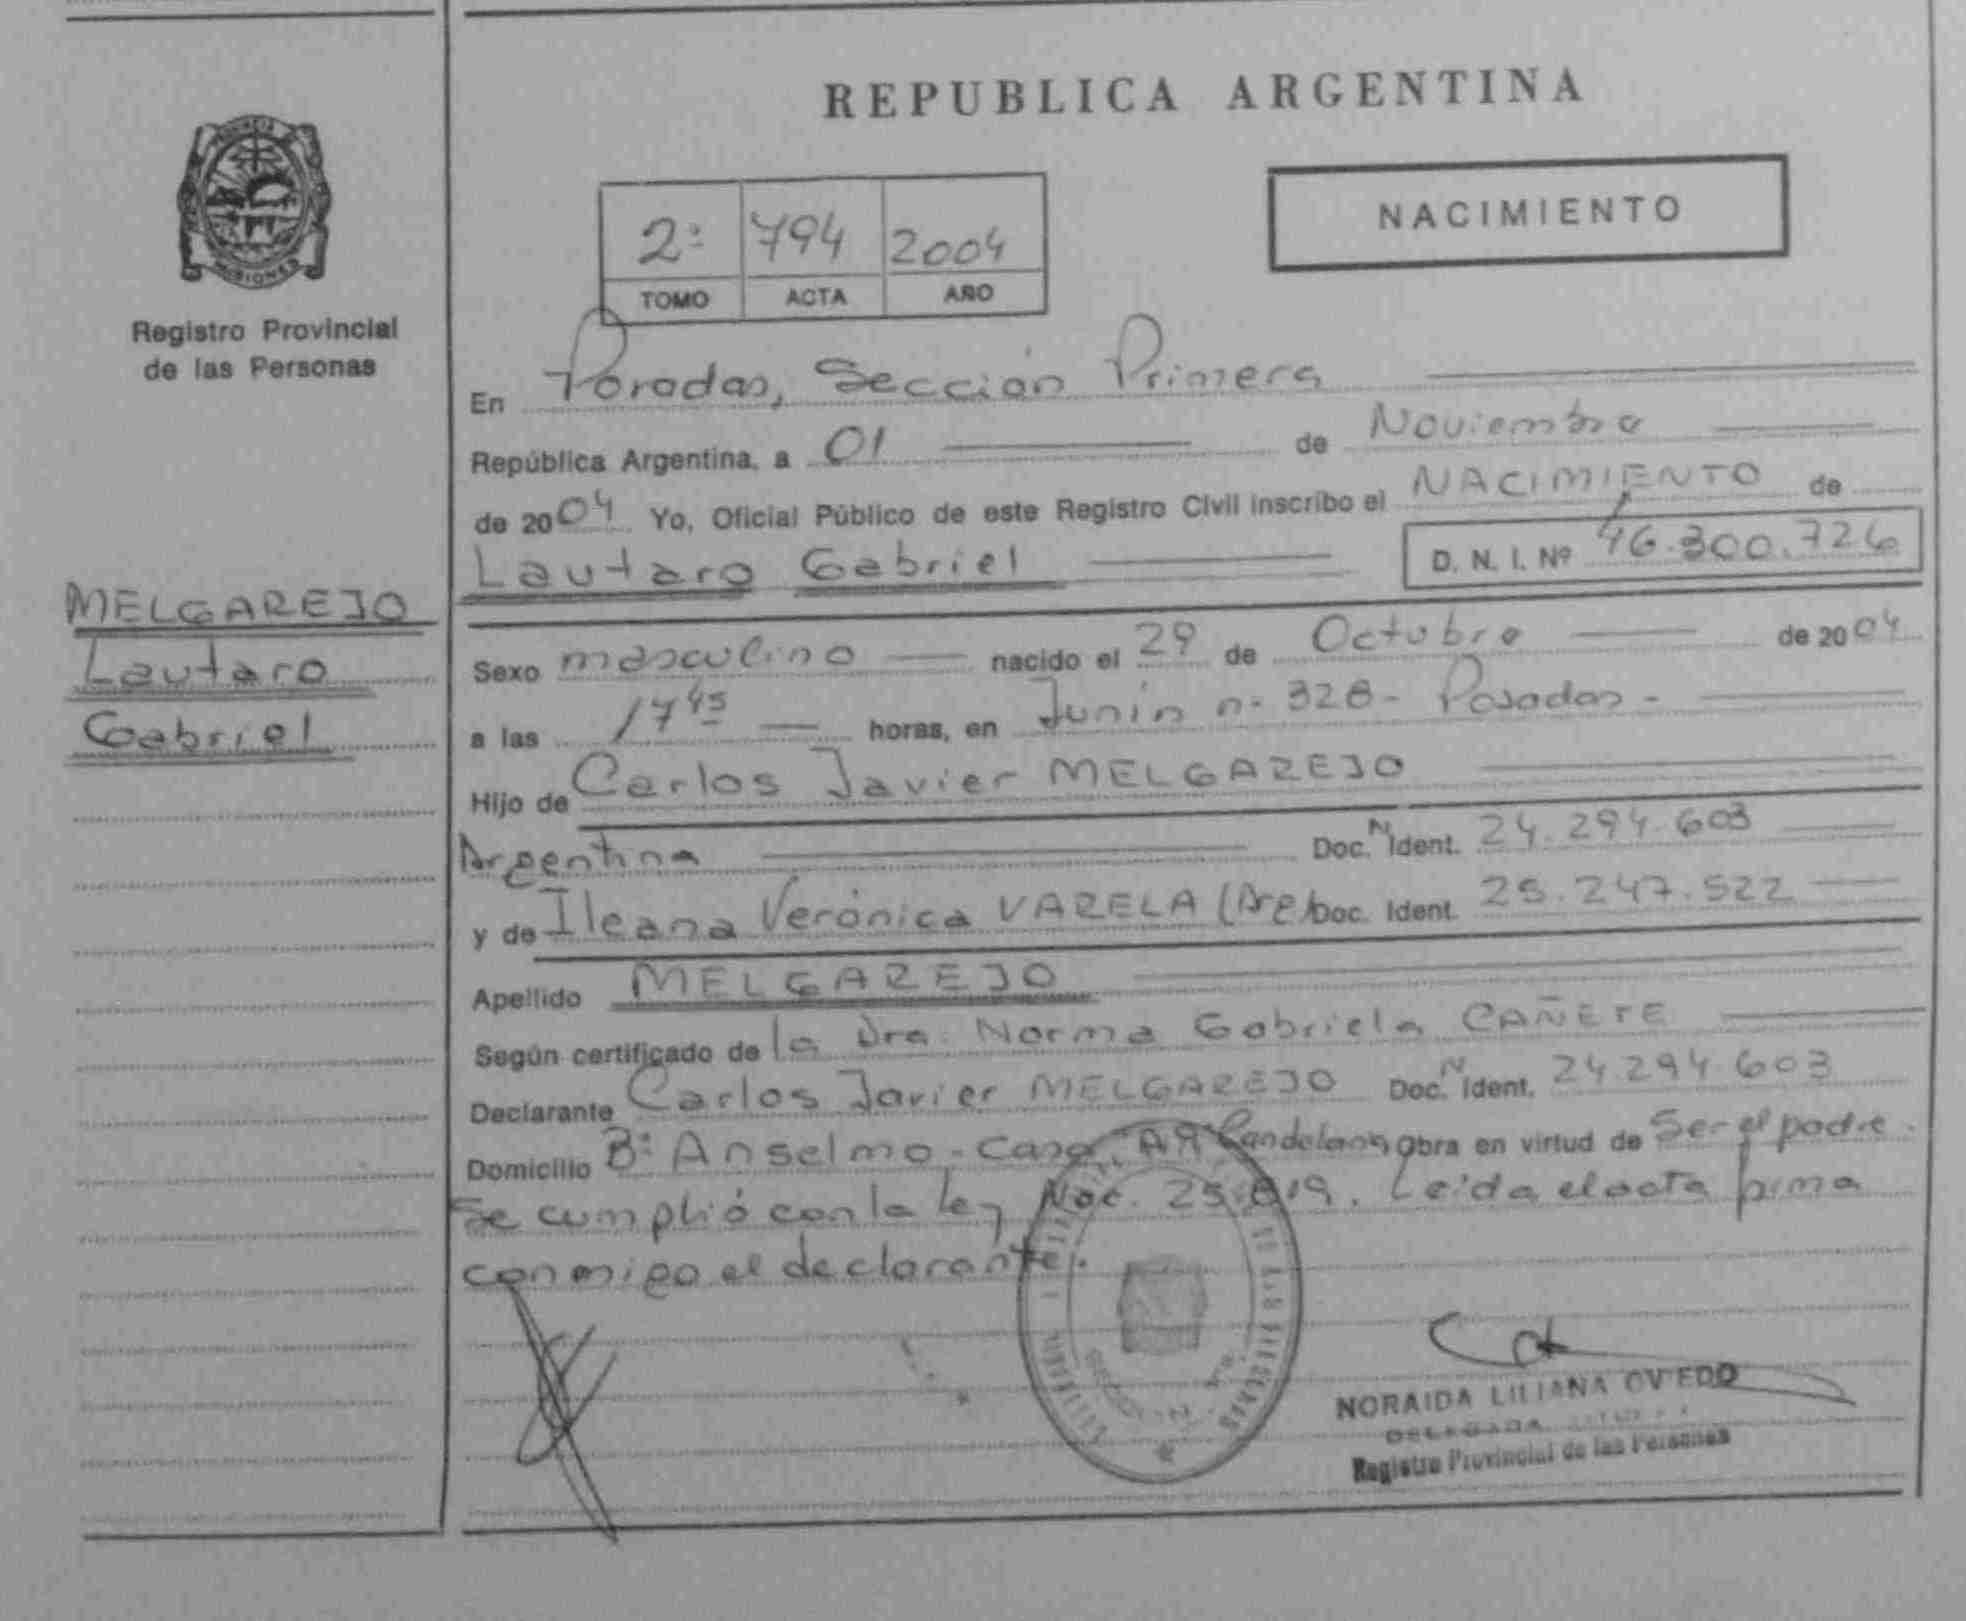 REPUBLICA ARGENTINA
MISIONES
Registro Provincial
de las Personas
2º 794 2004
TOMO ACTA AÑO
NACIMIENTO
En Posadas, Sección Primera
República Argentina, a 01 de Noviembre
de 2004 Yo, Oficial Público de este Registro Civil inscribo el NACIMIENTO de
Lautaro Gabriel D. N. I. Nº 46.300.726
MELGAREJO
Lautaro
Gabriel
Sexo masculino nacido el 29 de Octubre de 2004
a las 17 45 horas, en Junín nº 328 - Posadas -
Hijo de Carlos Javier MELGAREJO
Argentina Doc. N Ident. 24.294.603
y de Ileana Verónica VARELA (Arg) Doc. Ident. 25.247.522
Apellido MELGAREJO
Según certificado de la Dra. Norma Gabriela CAÑETE
Declarante Carlos Javier MELGAREJO Doc. N Ident. 24.294.603
Domicilio Bº Anselmo - Casa Candelaria Obra en virtud de Ser el padre.
Se cumplió con la ley Nac. 25.819. Leída el acta firma
conmigo el declarante.
NORAIDA LILIANA OVIEDO
DELEGADA
Registro Provincial de las Personas